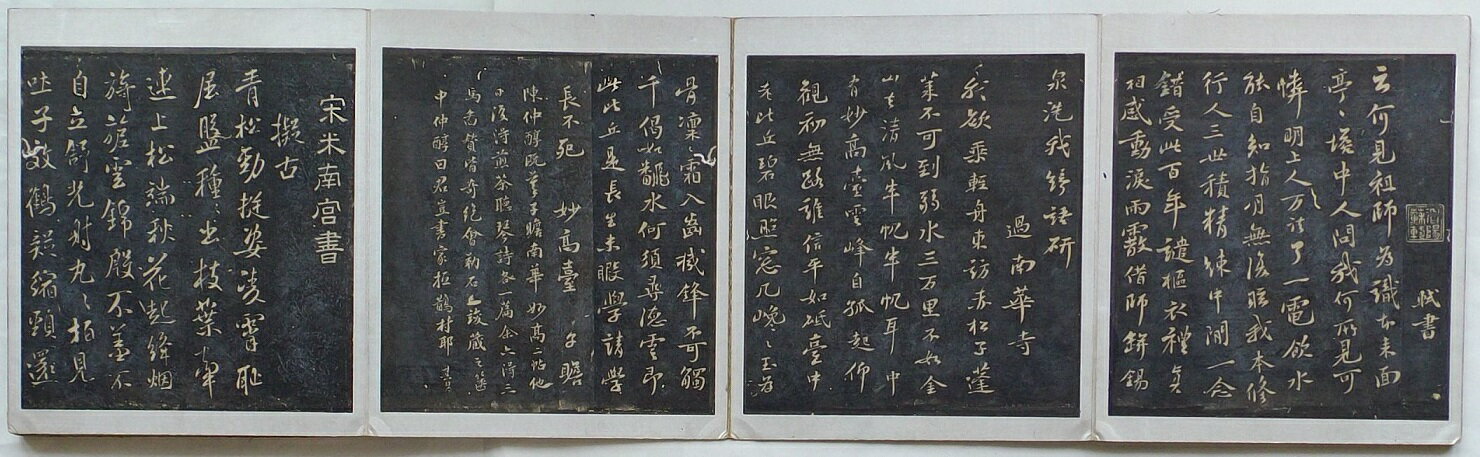 軾書
云何見祖師為識本来面
亭亭塔中人問我何所見可
憐明上人万法了一電飲水
能自知指月無復眩我本修
行人三世積精練中間一念
錯受此百年譴摳衣禮真
相感動淚雨霰借師錫
泉洗我綺語研
過南華寺
我欲乘輕舟東訪赤松子蓬
萊不可到弱水三万里不如金
山去清風半帆半帆耳中
有妙高臺雲峰自孤起仰
觀初無路誰信平如砥臺中
老比丘碧眼照窓几巉巉玉為
骨凜凜霜入齒機鋒不可觸
千偈如翻水何須尋德雲即
此比丘是長生未暇學請學
長不死 妙高臺 子瞻
陳仲醇既摹子瞻南華妙高二帖他
日復得煎茶聽琴詩各一篇余六得三
馬圖贊皆奇絕會勒石藏之
中仲醇曰君豈書家桓鵲村耶 其昌
宋米南宮書
擬古
青松勁挺姿凌霄恥
屈盤種種出枝葉牽
連上松端秋花起絳烟
旖旎雲錦殷不羞不
自立舒光射丸丸柏見
吐子效鶴疑縮頸還